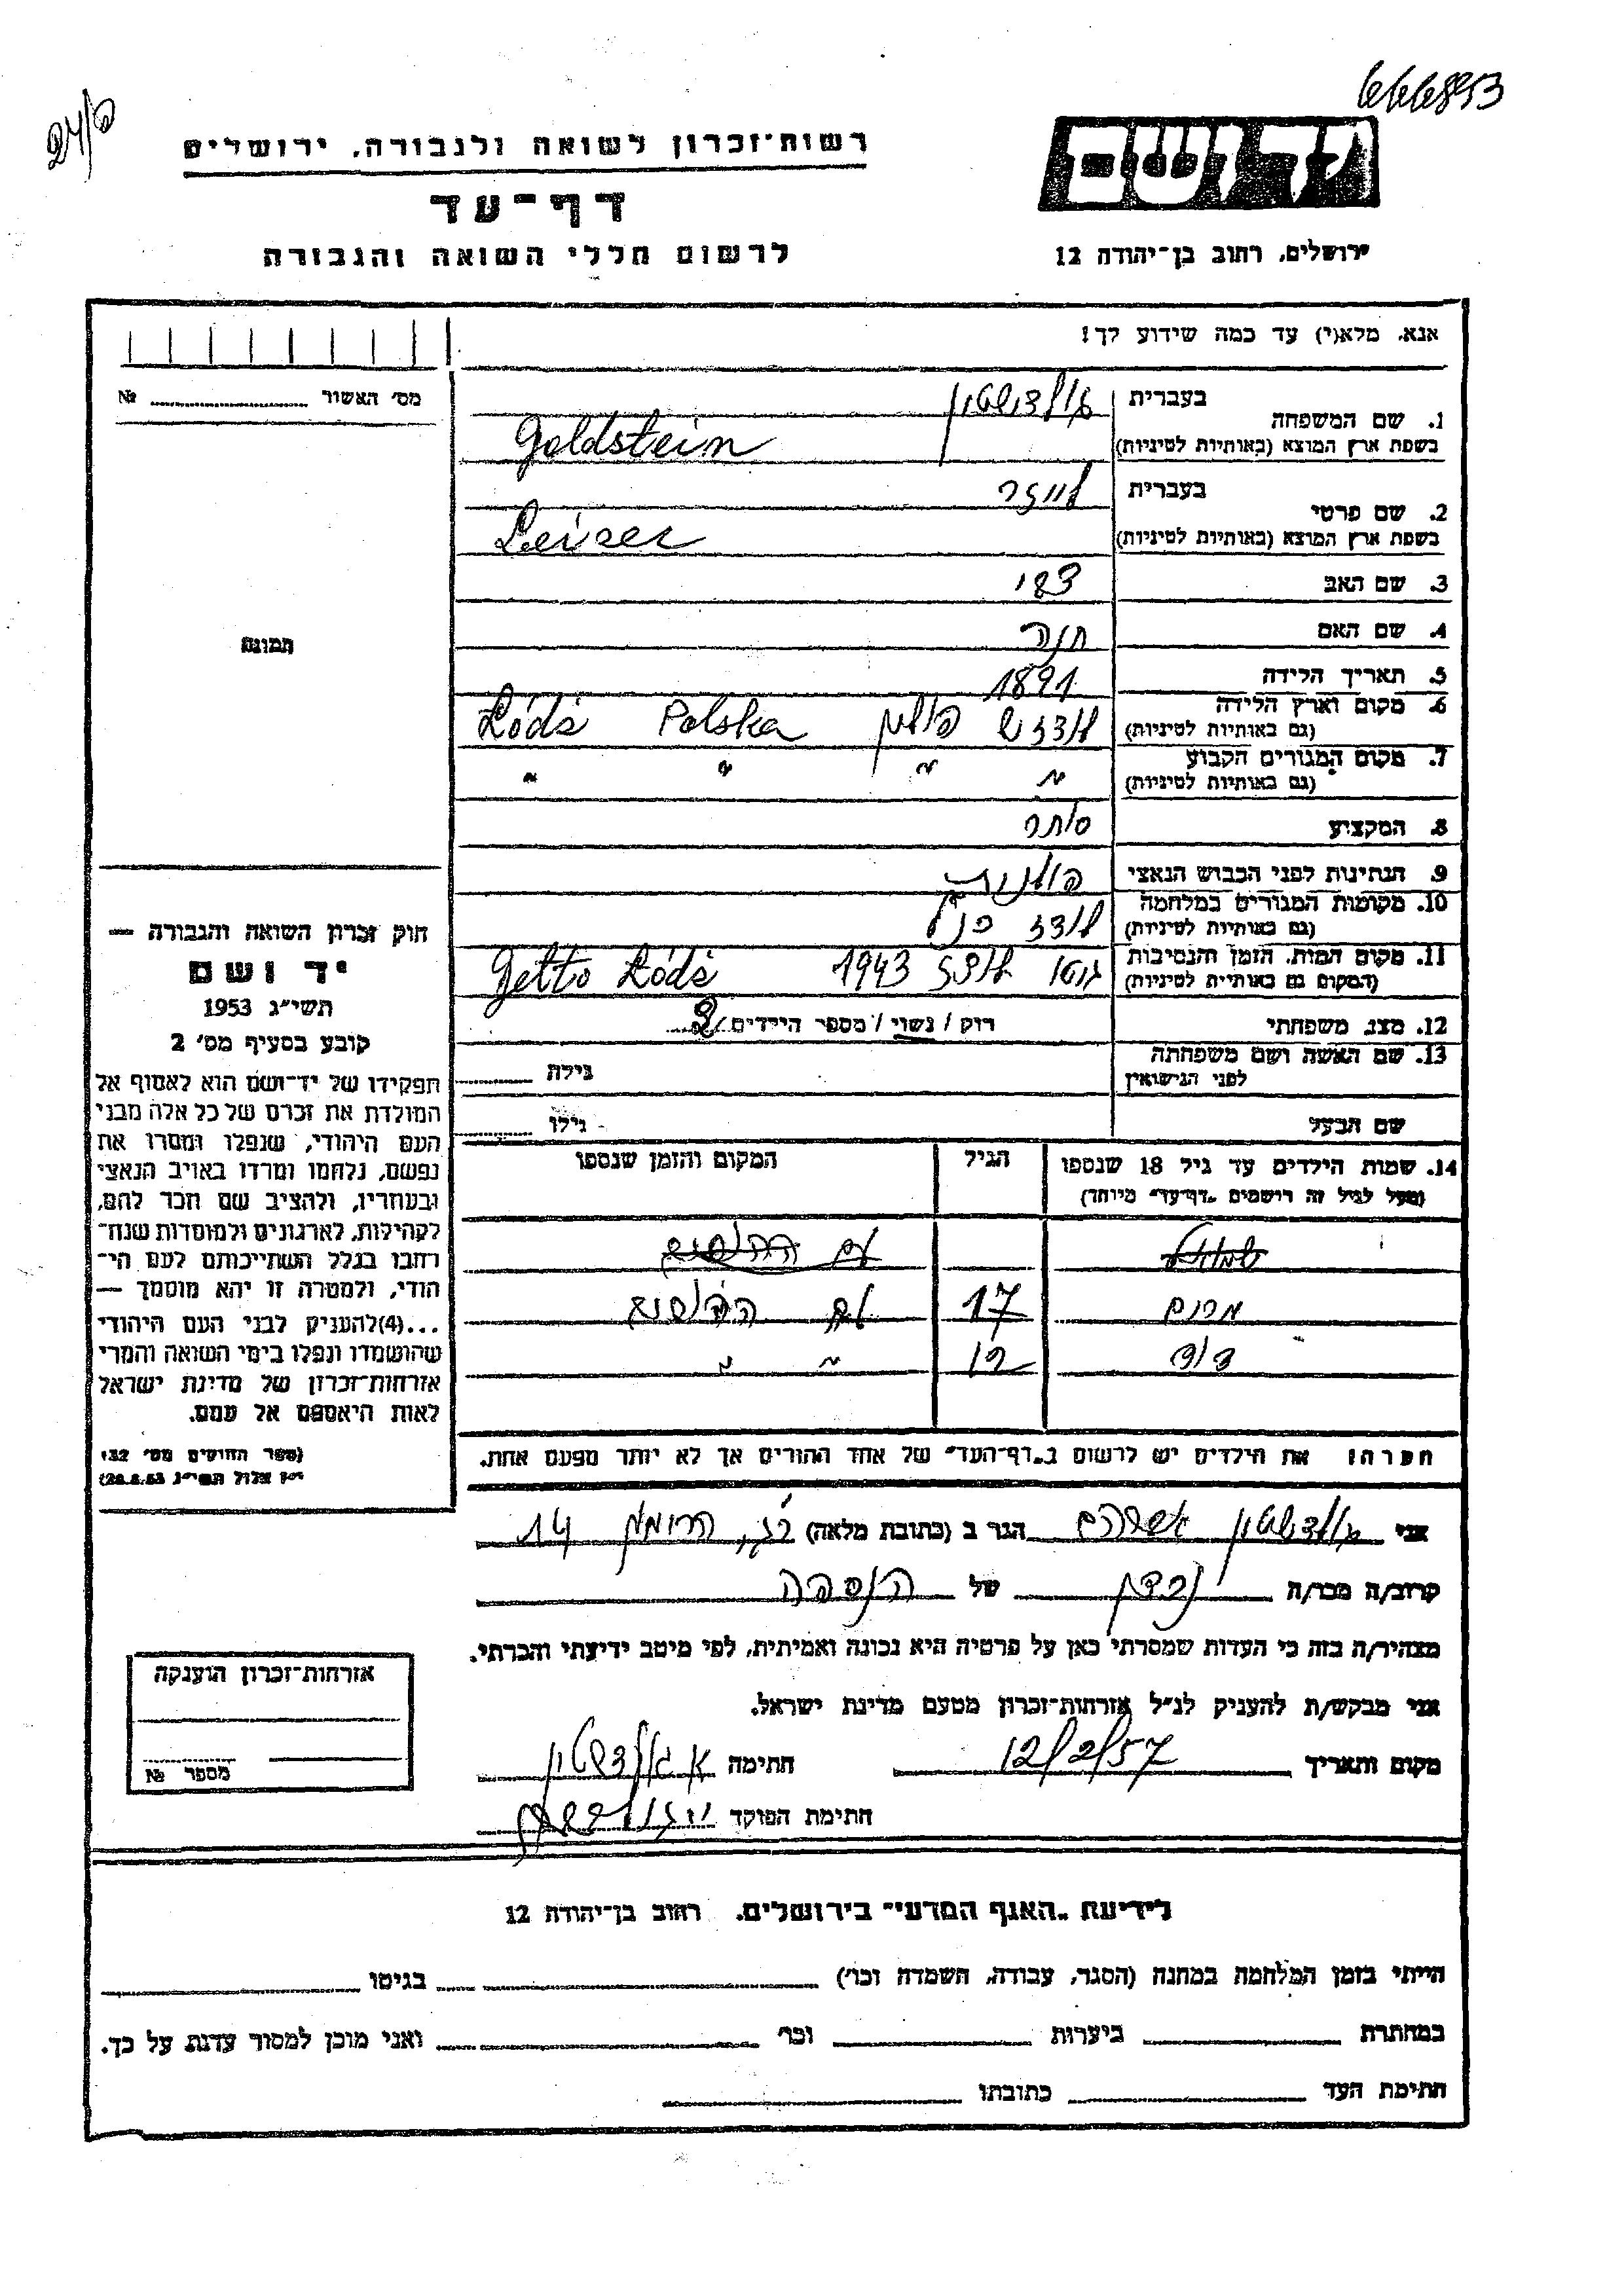 666853
24/פ
יד ושם
רשות־זכרון לשואה ולגבורה, ירושלים
דף־עד
לרשום חללי השואה והגבורה
ירושלים, רחוב בן־יהודה 12
אנא, מלא(י) עד כמה שידוע לך!
מס׳ האשור № ........
תמונה
1. שם המשפחה
בעברית גולדשטיין
בשפת ארץ המוצא (באותיות לטיניות) Goldstein
2. שם פרטי
בעברית לייזר
בשפת ארץ המוצא (באותיות לטיניות) Leizer
3. שם האב צבי
4. שם האם חנה
5. תאריך הלידה 1891
6. מקום וארץ הלידה לודז׳ פולין Polska Łódź
(גם באותיות לטיניות)
7. מקום המגורים הקבוע " " " "
(גם באותיות לטיניות)
8. המקצוע סוחר
9. הנתינות לפני הכבוש הנאצי פולנית
10. מקומות המגורים במלחמה לודז כנ״ל
(גם באותיות לטיניות)
11. מקום המות, הזמן והנסיבות גטו לודז 1943 Getto Łódź
(המקום גם באותיות לטיניות)
12. מצב משפחתי רווק / נשוי / מספר הילדים 2
13. שם האשה ושם משפחתה גילה
לפני הנישואין
שם הבעל גילו
14. שמות הילדים עד גיל 18 שנספו הגיל המקום והזמן שנספו
(מעל לגיל זה רושמים "דף־עד" מיוחד)
שמואל עם ההורים
מרים 17 עם ההורים
דוד 12 " "
הערה: את הילדים יש לרשום ב"דף־העד" של אחד ההורים אך לא יותר מפעם אחת.
חוק זכרון השואה והגבורה —
יד ושם
תשי״ג 1953
קובע בסעיף מס׳ 2
תפקידו של יד־ושם הוא לאסוף אל
המולדת את זכרם של כל אלה מבני
העם היהודי, שנפלו ומסרו את
נפשם, נלחמו ומרדו באויב הנאצי
ובעוזריו, ולהציב שם וזכר להם,
לקהילות, לארגונים ולמוסדות שנח־
רבו בגלל השתייכותם לעם הי־
הודי, ולמטרה זו יהא מוסמך —
...(4)להעניק לבני העם היהודי
שהושמדו ונפלו בימי השואה והמרי
אזרחות־זכרון של מדינת ישראל
לאות היאספם אל עמם.
(ספר החוקים מס׳ 132,
י״ז אלול תשי״ג 28.8.53)
אני גולדשטיין אברהם הגר ב (כתובת מלאה) ר״ג, הרואה 14
קרוב/ה מכר/ה של הנספה
מצהיר/ה בזה כי העדות שמסרתי כאן על פרטיה היא נכונה ואמיתית, לפי מיטב ידיעתי והכרתי.
אני מבקש/ת להעניק לנ״ל אזרחות־זכרון מטעם מדינת ישראל.
מקום ותאריך 12/2/57 חתימה א גולדשטיין
חתימת הפוקד
אזרחות־זכרון הוענקה
מספר №
לידיעת "האגף המדעי" בירושלים, רחוב בן־יהודה 12
הייתי בזמן המלחמה במחנה (הסגר, עבודה, השמדה וכו׳) בגיטו
במחתרת ביערות וכו׳ ואני מוכן למסור עדות על כך.
חתימת העד כתובתו